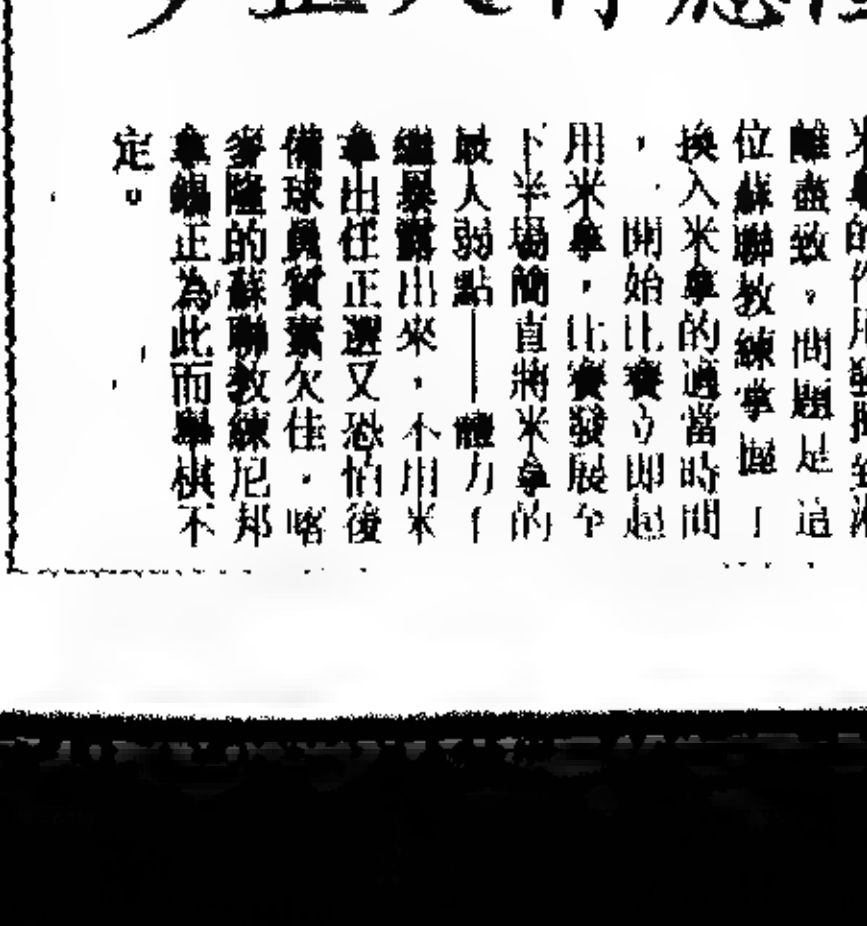 米拿的作用發揮到淋
離盡致。問題是這
位蘇聯教練掌握了
換入米拿的適當時間
，開始比賽立即起
用米拿，比賽發展至
下半場簡直將米拿的
最人弱點——體力
繼暴露出來，不用米
拿出任正選又恐怕後
備球員質素欠佳，喀
麥隆的蘇聯教練尼邦
拿錫正為此而舉棋不
定。